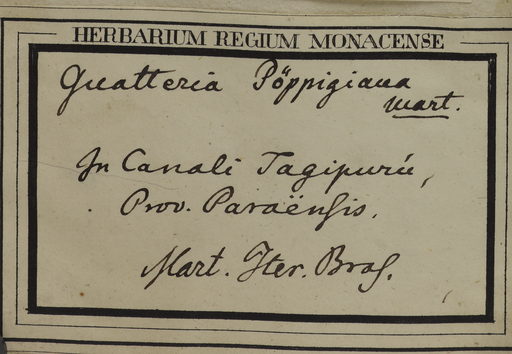 HERBARIUM REGIUM MONACENSE
Guatteria Pöppigiana
Mart.
In Canali Tagipurú,
Prov. Paraënsis.
Mart. Iter. Bras.